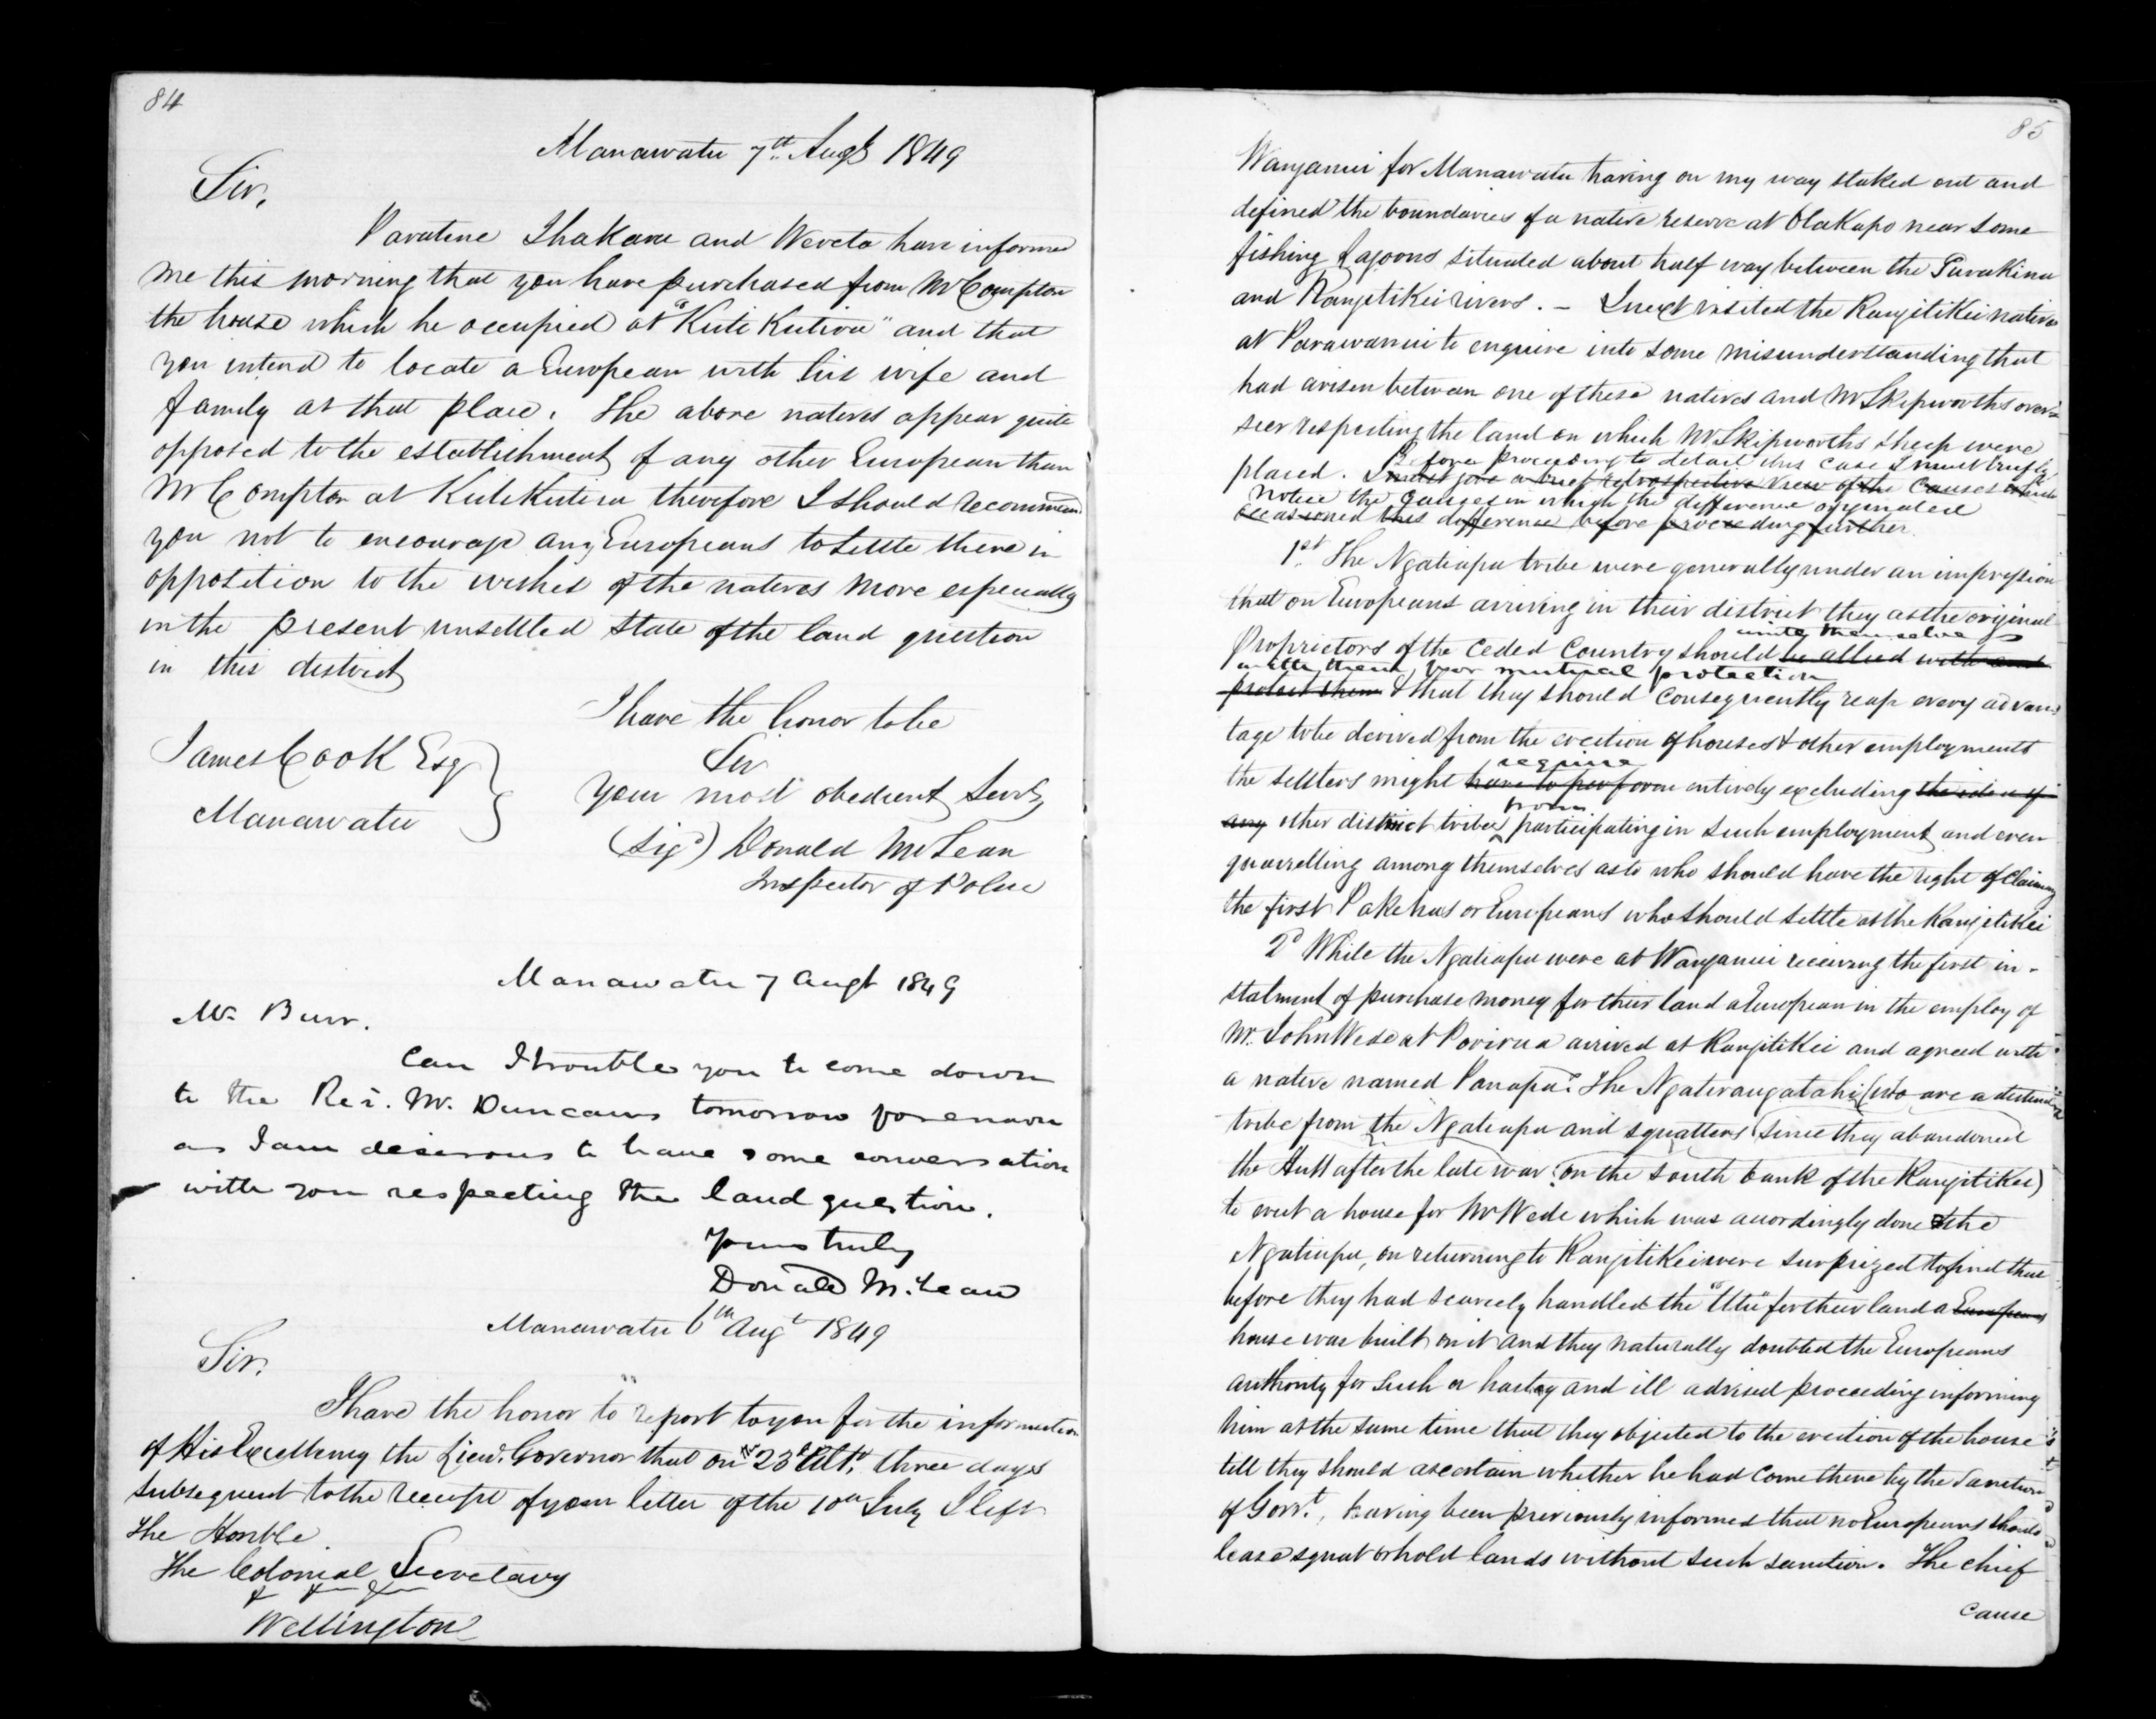 84
Manawatu 7th Augt 1849
Sir,
Paratene Ihakara and Wereta have informed
me this morning that you have purchased from Mr Compton
the house which he occupied at "Kuti Kutira" and that
you intend to locate a European with his wife and
family at that place. The above natives appear quite
opposed to the establishment of any other European than
Mr Compton at KutiKutira therefore I should recommend
you not to encourage any Europeans to settle there in
opposition to the wishes of the natives more especially
in the present unsettled state of the land question
in this district
I have the honor to be
Sir
Your most obedient Servt
(Sigd) Donald McLean
Inspector of Police
James Cook Esq
Manawatu
Manawatu 7 Augt 1849
Mr Burr.
Can I trouble you to come down
to the Rev. Mr. Duncans tomorrow forenoon
as I am desirous to have some conversation
with you respecting the land question.
Yours truly
Donald McLean
Manawatu 6th Augt 1849
Sir,
I have the honor to report to you for the information
of His Excellency the Lieut. Governor that on 23d Ulto, three days
subsequent to the receipt of your letter of the 10th July I left
The Honble.
The Colonial Secretary
& & &
Wellington
85
Wanganui for Manawatu having on my way staked out and
defined the boundaries of a native reserve at OtaKapo near some
fishing Lagoons situated about half way between the TuraKina
and RangitiKei rivers. – I next visited the RangitiKei natives
at Parawanui to enquire into some misunderstanding that
had arisen between one of these natives and Mr Skipworths over-
seer respecting the land on which Mr Skipworths sheep were
Before proceeding to detail this case I must briefly
placed. I must give a brief retrospective view of the causes which
notice the causes in which the difference originated
occasioned this difference before proceeding further.
1st The Ngatiapa tribe were generally under an impression
that on Europeans arriving in their district they as the original
unite themselves
Proprietors of the ceded Country should be allied with and
with them for mutual protection
protect them & that they should consequently reap every advan-
tage to be derived from the erection of houses & other employments
require
the settlers might have to perform entirely excluding the idea of
from
any other distinct tribes participating in such employment and even
quarrelling among themselves as to who should have the right of claiming
the first Pakehas or Europeans who should settle at the Rangitikei
2d While the Ngatiapa were at Wanganui receiving the first in-
stalment of purchase money for their land a European in the employ of
Mr. John Wede at Porirua arrived at RangitiKei and agreed with
a native named Panapa. The Ngatiraugatahi (who are a distinct
tribe from the Ngatiapa and squatters since they abandoned
the Hutt after the late war on the south bank of the RangitiKei)
to erect a house for Mr Wede which was accordingly done & the
Ngatiapa, on returning to RangitiKei were surprized to find that
before they had scarcely handled the "Utu" for their land a European
house was built on it and they naturally doubted the Europeans
authority for such a hasty and ill advised proceeding informing
him at the same time that they objected to the erection of the house
till they should ascertain whether he had come there by the sanction
of Govt., having been previously informed that no Europeans should
lease squat or hold lands without such sanction. The chief
cause